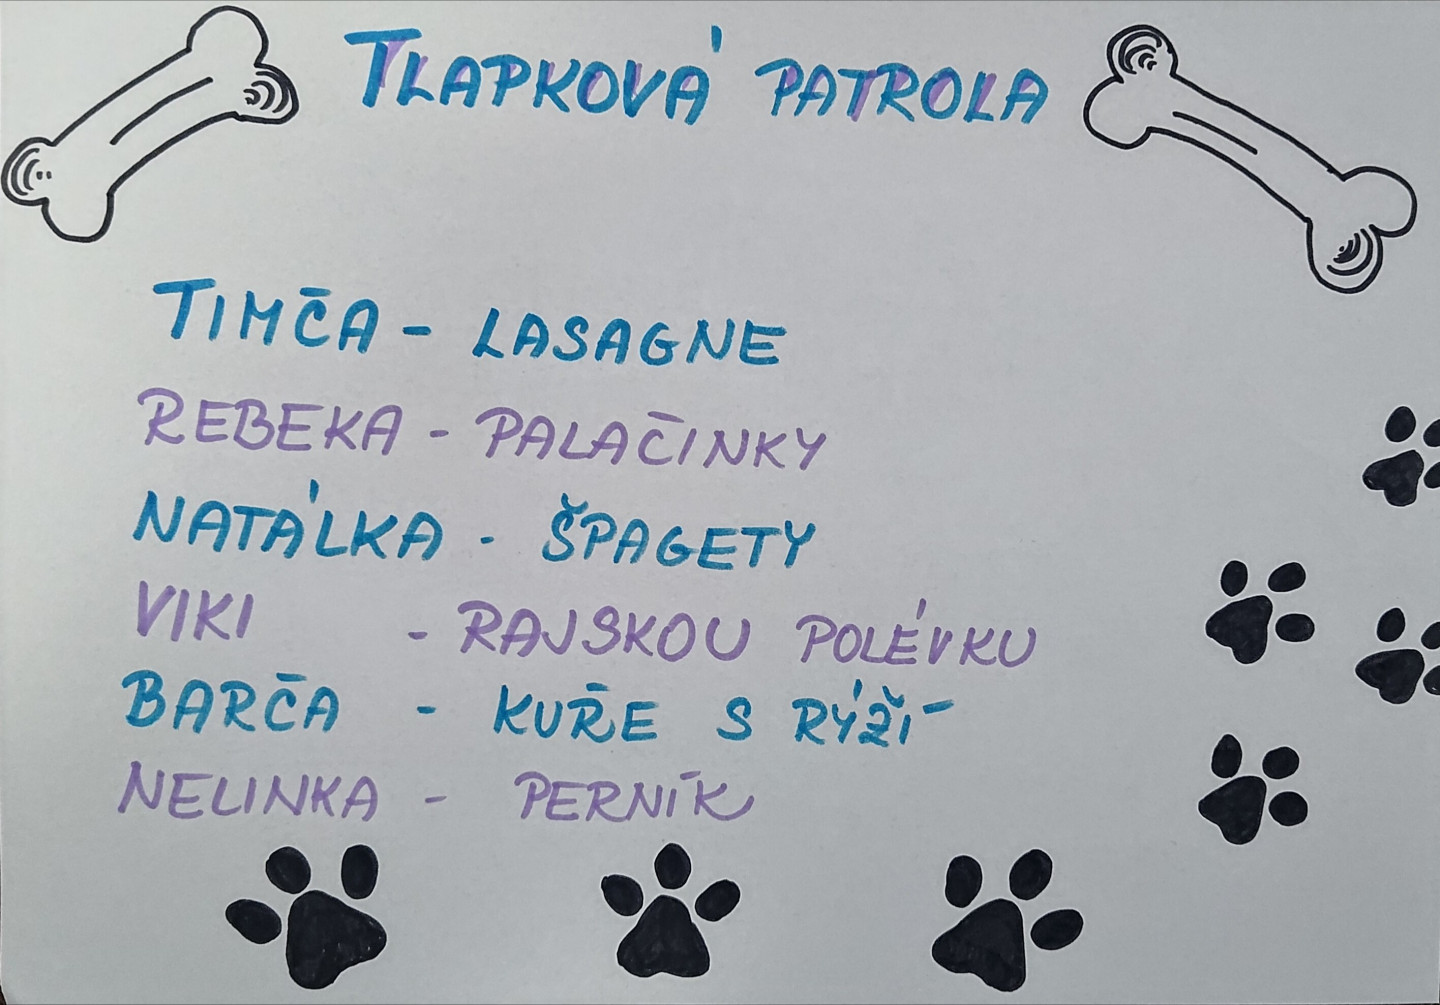 TLAPKOVÁ PATROLA
TIMČA - LASAGNE
REBEKA - PALAČINKY
NATÁLKA - ŠPAGETY
VIKI - RAJSKOU POLÉVKU
BARČA - KUŘE S RÝŽÍ
NELINKA - PERNÍK